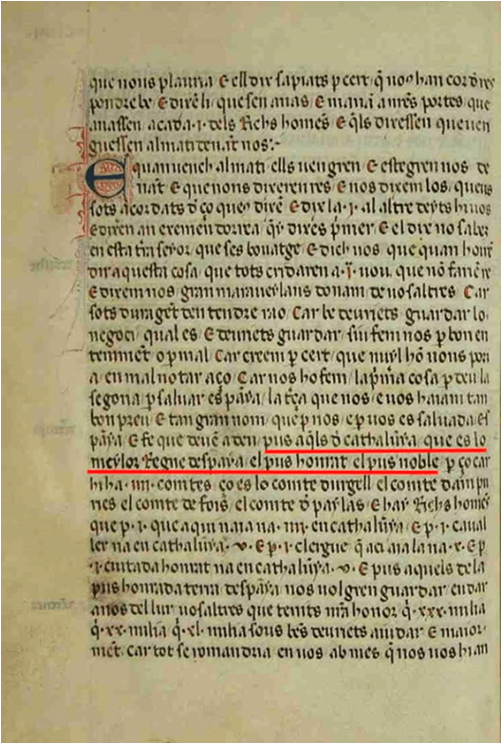 que nous plauria E ell dix sapiats p cert q̄ noy han cor dres
pondre be E direh li quesen anas E manā̄ a nr̄es portes que
anassen a cada .i. dels Richs homēs E q̄ls diguessen que uen
guessen al mati deuāt nos:-
E quan uench al mati ells uengren E estegren nos de
uāt E que nons dixeren res E nos dixem los, queus
sots acordats d̄ ço que
E dix la .i. al altre
E dixen an exemen dorrea
en esta trā seyor, que ses bouatge E dich uos que quan hom
dir aquesta cosa, que tots
E dixem nos gran maraueylans donam de uosaltres Car
sots dur aget den tendre rao Car be deuriets guardar lo
negoci qual es E deuriets guardar siu fem nos p bon en
teniment o p mal Car creem p cert, que nuyl hō nous pot
a en mal notar aço Car nos ho fem la p̄ma cosa p deu la
segona p saluar espāya, la tc̄a que nos e uos haiam tan
bon preu E tan gran nom que p nos e p uos es saluada es
pāya E fe que deuē a deu pus aq̄ls d̄ cathalūya que es lo
meylor Regne despāya el pus honrat el pus noble p ço car
hi ha .iiii. comtes ço es lo comte durgell el comte dampu
ries el comte de foix el comte d̄ paylas E hay Richs homēs
que p .i. que aqui naia na .iiii. en cathalūya E p .i. caual
ler na en cathalūya .v. E p .i. clergue q̄ aci aia la na .x. E p
.i. ciutada honrat na en cathalūya .v. E pus aquels de la
pus honrada terra despāya nos uolgren guardar en dar
a nos del lur uosaltres que tenits nrā honor q̄ .xxx. milia
q̄ .xx. milia q̄ .xl. milia sous bēs deuriets aiudar E maior
mēt car tot se romandria en uos ab mes q̄ nos uos hi am